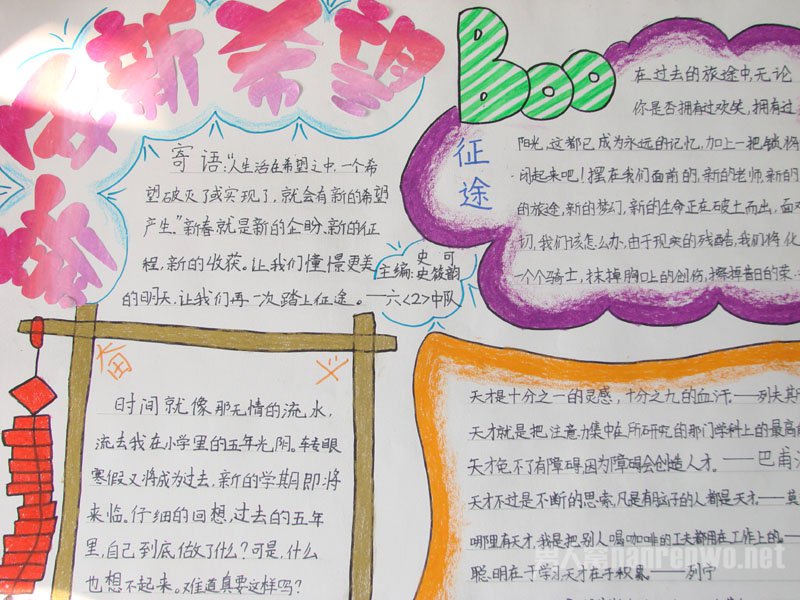 新希望
寄语:“人生活在希望之中,一个希
望破灭了或实现了,就会有新的希望
产生.”新春就是新的企盼、新的征
程,新的收获。让我们憧憬更美
的明天.让我们再一次踏上征途。——六<2>中队
史可
主编:史筱韵
Boo
征途
在过去的旅途中,无论
你是否拥有过欢笑,拥有过
阳光,这都已成为永远的记忆,加上一把锁将
闭起来吧!摆在我们面前的,新的老师,新的
的旅途,新的梦幻,新的生命正在破土而出,面对
切,我们该怎么办,由于现实的残酷,我们将化
一个个骑士,抹掉胸口上的创伤,擦掉昔日的荣
奋
时间就像那无情的流水,
流去我在小学里的五年光阴。转眼
寒假又将成为过去,新的学期即将
来临.仔细的回想,过去的五年
里,自己到底做了什么?可是,什么
也想不起来。难道真要这样吗?
天才是十分之一的灵感,十分之九的血汗.——列夫
天才就是把注意力集中在所研究的那门学科上的最高
天才免不了有障碍,因为障碍会创造人才。——巴甫
天才不过是不断的思索,凡是有脑子的人都是天才——莫
哪里有天才,我是把别人喝咖啡的工夫都用在工作上的.
聪明在于学习天才在于积累。——列宁
nanrenwo.net